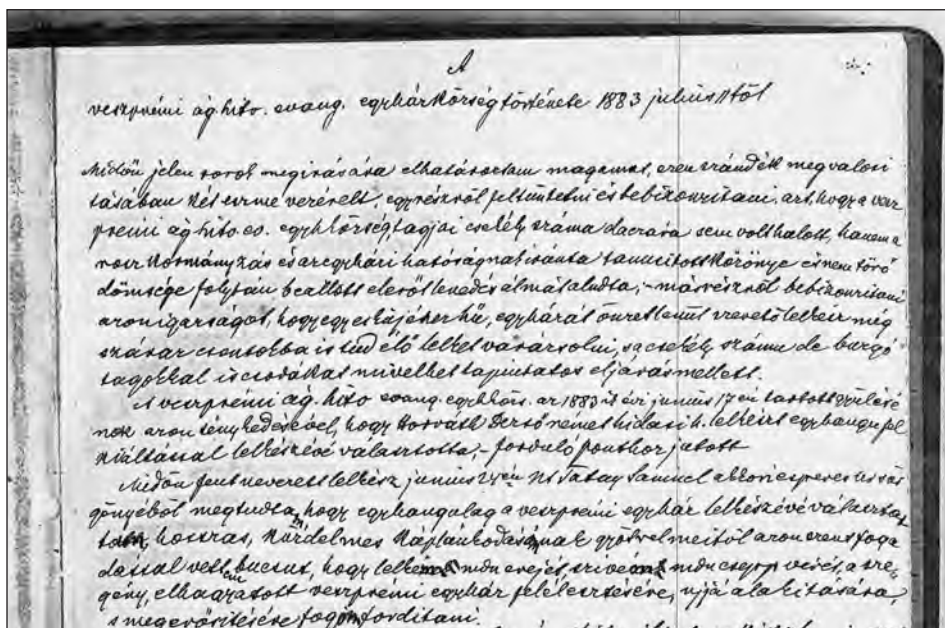 A
veszprémi ág. hitv. evang. egyházközség története 1883 julius 1től
Midőn jelen sorok megirására elhatároztam magamat, ezen szándék megvalosi
tásában két eszme vezérelt, egyrészről feltüntetni és bebizonyitani azt, hogy a vesz
prémi ág. hitv. ev. egyhközség tagjai csekély száma daczára sem volt halott, hanem a
rosz kormányzás és az egyházi hatóságnak iránta tanusitott közönye és nem törő
dömsége folytán beállott elerőtlenedés álmát aludta, – másrészről bebizonyitani
azon igazságot, hogy egy eshájéhez hű, egyházát önzetlenül szerető lelkész még
száraz csontokba is tud élő lelket varázsolni, s a csekély számu de buzgó
tagokkal is csodákat müvelhet tapintatos eljárás mellett.
A veszprémi ág. hitv. evang. egyhközs. az 1883ik évi junius 17én tartott gyülésé
nek azon ténykedésével, hogy Horváth Dezső némethidasi h. lelkészt egyhangu fel
kiáltással lelkészévé választotta, – forduló ponthoz jutott
Midőn fent nevezett lelkész junius én Sámuel esperes ur sür
gönyéből megtudta, hogy egyhangulag a veszprémi egyház lelkészévé választat
hosszas, küzdelmes káplánkodásának gyötrelmeitől azon erős foga
dással vett bucsut, hogy lelke minden erejét, szive minden csepp vérét, a sze
gény, elhagyatott veszprémi egyház felélesztésére, ujjá alakitására,
s megerősitésére fogja forditani.